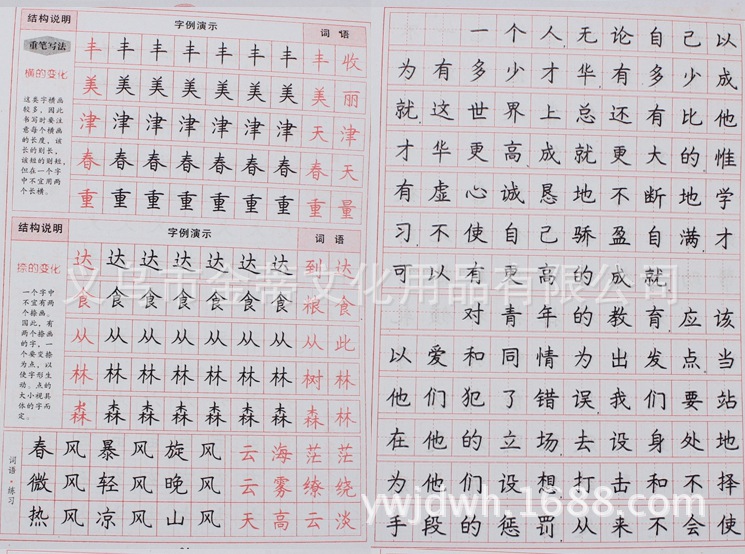 结构说明 字例演示 词语
重笔写法 丰 丰 丰 丰 丰 丰 丰 丰 收
横的变化 美 美 美 美 美 美 美 美 丽
津 津 津 津 津 津 津 天 津
春 春 春 春 春 春 春 春 天
重 重 重 重 重 重 重 重 量
这类字横画
较多，因此
书写时要注
意每个横画
的长度，该
长的则长，
该短的则短，
但在一个字
中不宜用两
个长横。
结构说明 字例演示 词语
捺的变化 达 达 达 达 达 达 达 到 达
食 食 食 食 食 食 食 粮 食
从 从 从 从 从 从 从 从 此
林 林 林 林 林 林 林 树 林
森 森 森 森 森 森 森 森 林
一个字中
不宜有两
个捺画。
因此，有
两个捺画
的字，一
个要变捺
为点，以
使字形生
动。点的
大小视具
体的字而
定。
词语·练习
春风暴风旋风云海茫茫
微风轻风晚风云雾缭绕
热风凉风山风天高云淡
一个人无论自己以
为有多少才华有多少成
就，这世界上总还有比他
才华更高成就更大的，惟
有虚心诚恳地不断地学
习，不使自己骄盈自满，才
可以有更高的成就。
对青年的教育，应该
以爱和同情为出发点，当
他们犯了错误，我们要站
在他的立场，去设身处地
为他们设想，打击和不择
手段的惩罚，从来不会使
义乌市金蒂文化用品有限公司
ywjdwh.1688.com